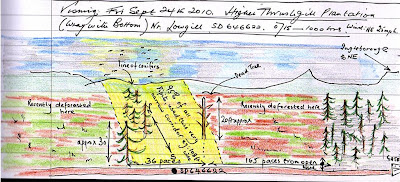 Vismig Fri Sept 24th 2010. Higher Thrushgill Plantation
(Wray with Bottom) Nr. Lowgill SD646622. 0715 - 1000hrs Wind NE 25mph
line of conifers
Dead Tree
Ingleborough
NE
Recently deforested here
95% of all
Recently deforested here
approx 30
20ft approx
36 paces
165 paces from open
SD646622